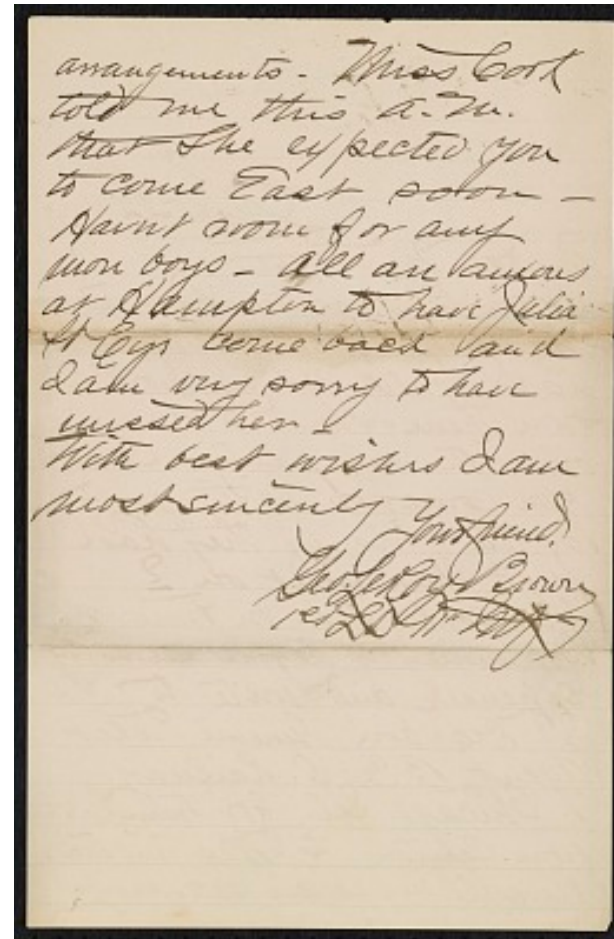 arrangements - Miss Cook
told me this a.m.
that She expected you
to come East soon -
Havnt room for any
mon boys - All an anxious
at Hampton to have Julia
St Cyr come back and
I am very sorry to have
missed her -
With best wishes I am
most sincerely
Your friend,
Geo. LeRoy Brown
1st Lt 11th Inf